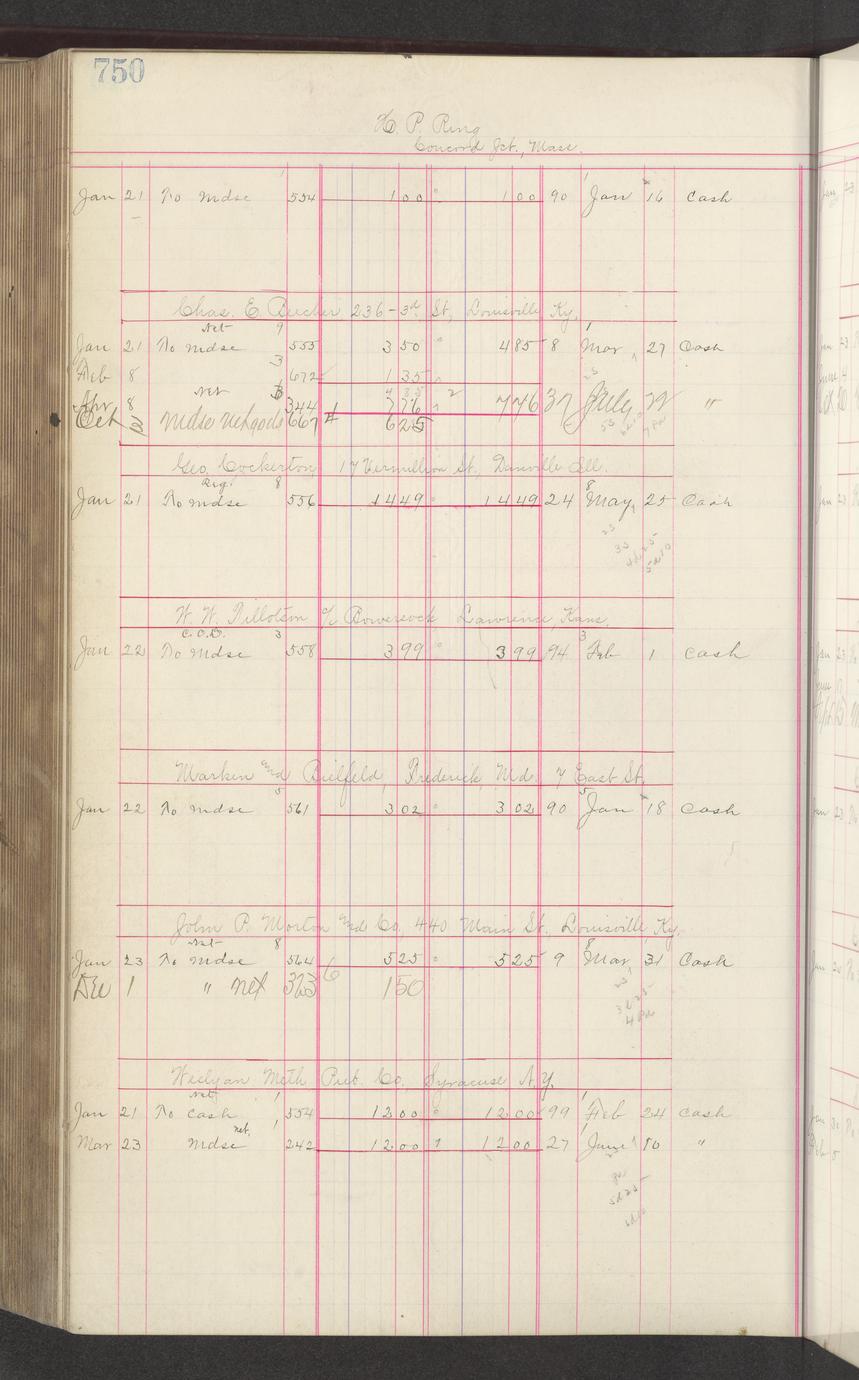 750
H. P. Ring
Concord Jct., Mass.
Jan 21 To mdse 554 100 100 90 Jan 16 Cash
Chas. E. Buchen 236-3rd St, Louisville Ky.
Net 9
Jan 21 To mdse 555 350 485 8 Mar 27 Cash
Feb 8 3 672 135
Net 485 2
Apr 8 344 776 776 37 July 22 "
Oct 3 mdse net goods 667 625
Geo. Cockerton 17 Vermillion St. Danville Ill.
Reg. 8
Jan 21 To mdse 556 1449 1449 24 May 25 Cash
W. W. Tillotson c/o Bowersock Lawrence, Kans.
C.O.D. 3 3
Jan 22 To mdse 558 399 399 94 Feb 1 Cash
Marken and Bielfeld, Frederick Md. 7 East St.
5 5
Jan 22 To mdse 561 302 302 90 Jan 18 Cash
John P. Morton and Co. 440 Main St. Louisville, Ky.
Net 8 8
Jan 23 To mdse 564 525 525 9 Mar 31 Cash
Dec 1 " net 323 6 150
Weslyan Meth Pub. Co. Syracuse N.Y.
net 1 1
Jan 21 To Cash 554 1200 1200 99 Feb 24 Cash
net 1
Mar 23 mdse 242 1200 1 1200 27 June 10 "